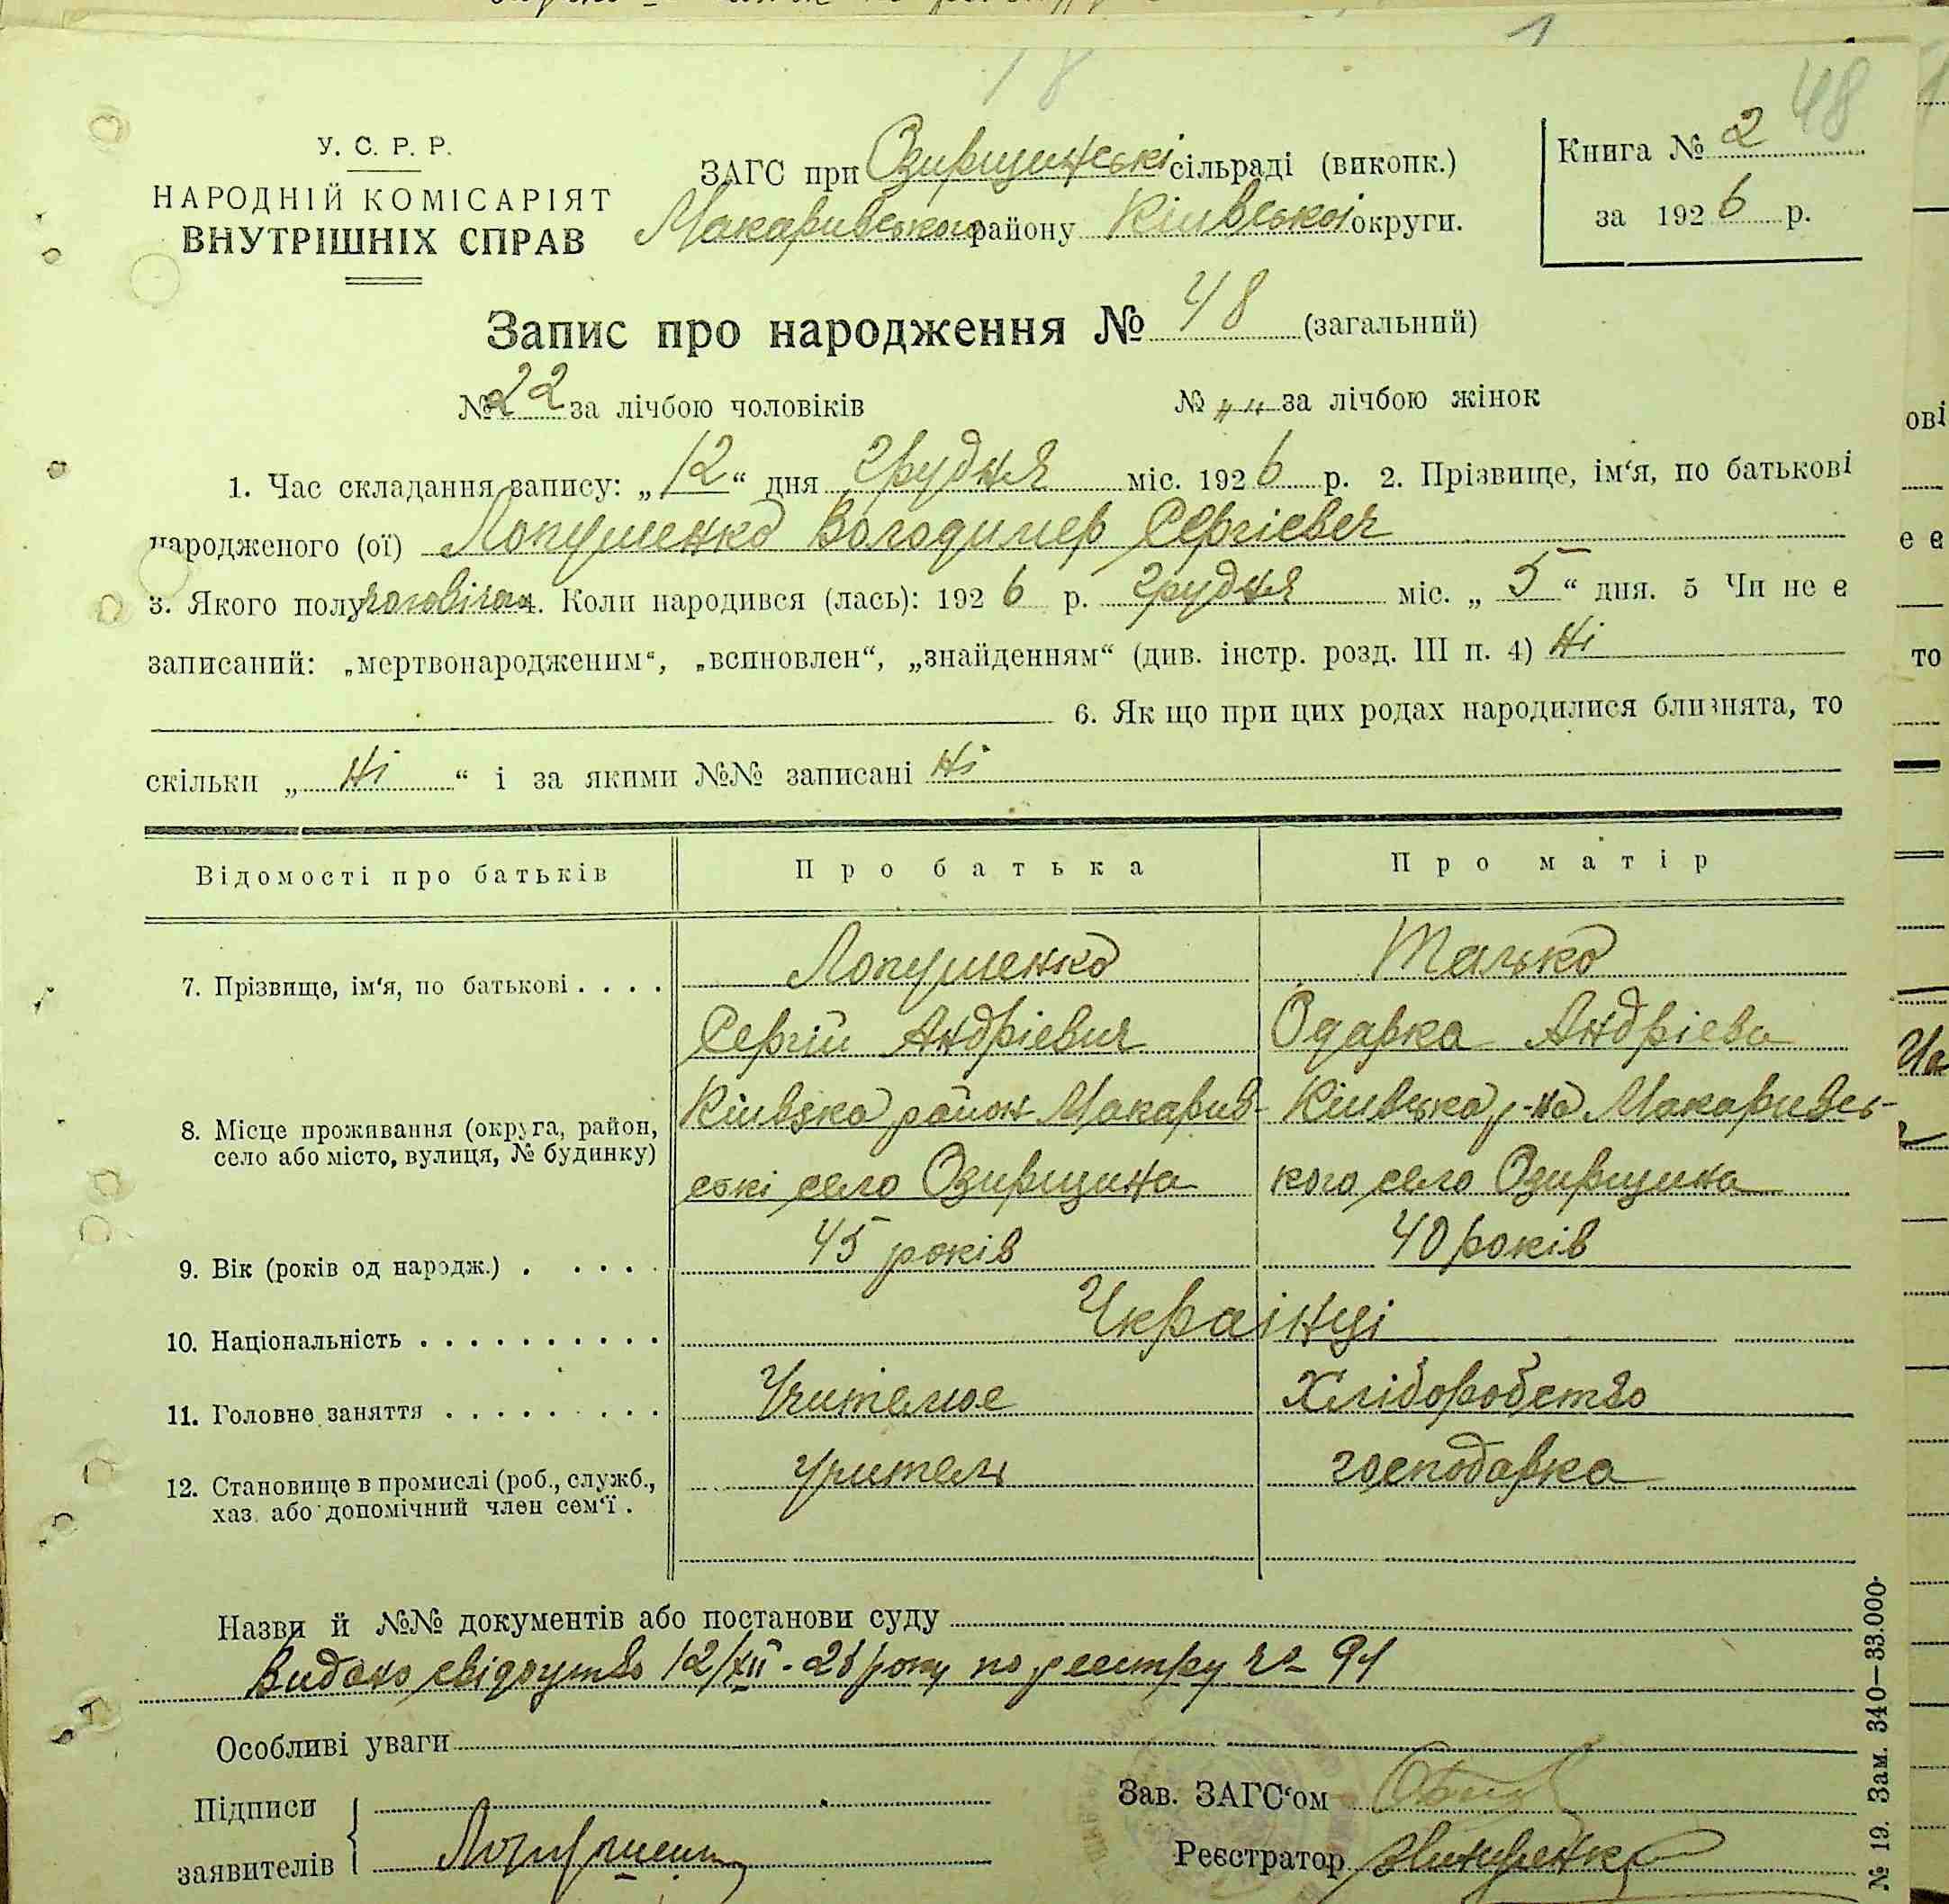 48
У. С. Р. Р.
НАРОДНІЙ КОМІСАРІЯТ
ВНУТРІШНІХ СПРАВ
ЗАГС при Озирщинські сільраді (викопк.)
Макаривського району Київської округи.
Книга № 2
за 1926 р.
Запис про народження № 48 (загальний)
№ 22 за лічбою чоловіків № „ „ за лічбою жінок
1. Час складання запису: „12“ дня грудня міс. 1926 р. 2. Прізвище, ім‘я, по батькові
народженого (ої) Лопушенко Володимер Сергієвеч
3. Якого полу чоловічого 4. Коли народився (лась): 1926 р. грудня міс. „5“ дня. 5 Чи не є
записаний: „мертвонародженим“, „всиновлен“, „знайденням“ (див. інстр. розд. III п. 4) Ні
6. Як що при цих родах народилися близнята, то
скільки „Ні“ і за якими №№ записані Ні
Відомості про батьків Про батька Про матір
7. Прізвище, ім‘я, по батькові . . . . Лопушенко
Сергій Андрієвич Одарка Андрієва
8. Місце проживання (округа, район, село або місто, вулиця, № будинку) Київска район Макарив-
ські село Озирщина
Київська р-на Макаривсь-
кого село Озирщина
9. Вік (років од народж.) . . . . . 45 років 40 років
10. Національність . . . . . . . . . . Українці
11. Головне заняття . . . . . . . . . Учителює Хліборобство
12. Становище в промислі (роб., служб., хаз. або допомічний член сем‘ї . учитель господарка
Назви й №№ документів або постанови суду
Видано свідоцтво 12/XII-26 року по реестру № 91
Особливі уваги
Підписи
заявителів
Зав. ЗАГС‘ом
Реєстратор
№ 19. Зам. 340—33.000.